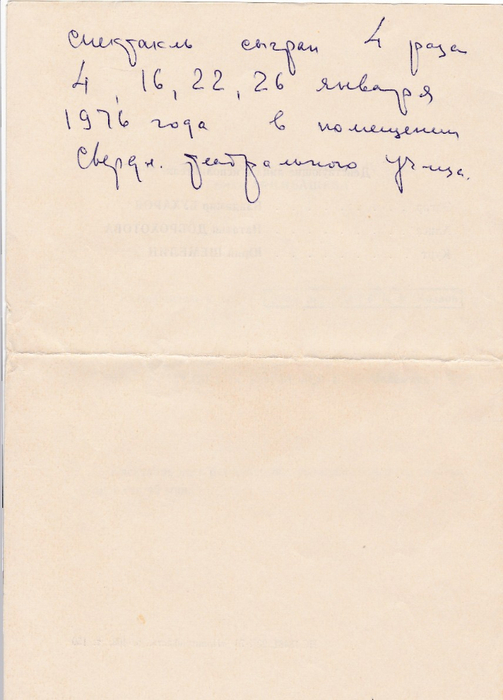 спектакль сыгран 4 раза
4, 16, 22, 26 января
1976 года в помещении
Свердл. театрального уч-ща.